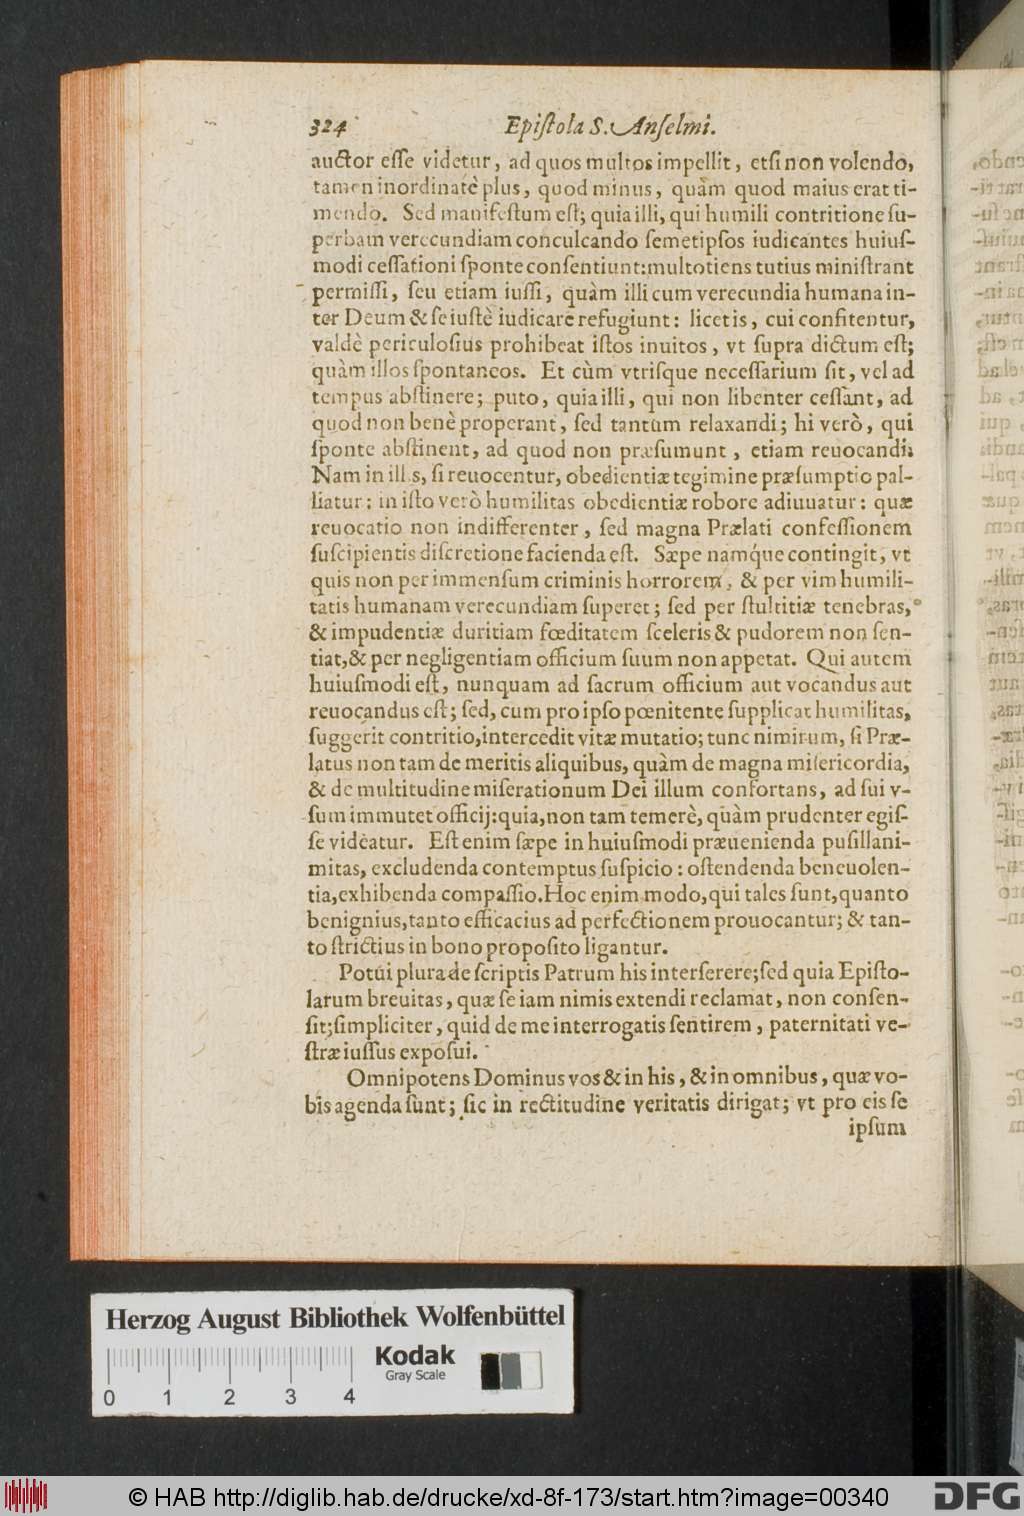 324 Epiſtola S. Anſelmi.
auctor eſſe videtur, ad quos multos impellit, etſi non volendo,
tamen inordinatè plus, quod minus, quàm quod maius erat ti-
mendo. Sed manifeſtum eſt; quia illi, qui humili contritione ſu-
perbam verecundiam conculcando ſemetipſos iudicantes huiuſ-
modi ceſſationi ſponte conſentiunt: multotiens tutius miniſtrant
permiſſi, ſeu etiam iuſſi, quàm illi cum verecundia humana in-
ter Deum & ſe iuſtè iudicare refugiunt: licet is, cui confitentur,
valdè periculoſius prohibeat iſtos inuitos, vt ſupra dictum eſt;
quàm illos ſpontaneos. Et cùm vtriſque neceſſarium ſit, vel ad
tempus abſtinere; puto, quia illi, qui non libenter ceſſant, ad
quod non benè properant, ſed tantùm relaxandi; hi verò, qui
ſponte abſtinent, ad quod non præſumunt, etiam reuocandi:
Nam in illis, ſi reuocentur, obedientiæ tegimine præſumptio pal-
liatur: in iſto verò humilitas obedientiæ robore adiuuatur: quæ
reuocatio non indifferenter, ſed magna Prælati confeſſionem
ſuſcipientis diſcretione facienda eſt. Sæpe namque contingit, vt
quis non per immenſum criminis horrorem, & per vim humili-
tatis humanam verecundiam ſuperet; ſed per ſtultitiæ tenebras,
& impudentiæ duritiam fœditatem ſceleris & pudorem non ſen-
tiat, & per negligentiam officium ſuum non appetat. Qui autem
huiuſmodi eſt, nunquam ad ſacrum officium aut vocandus aut
reuocandus eſt; ſed, cum pro ipſo pœnitente ſupplicat humilitas,
ſuggerit contritio, intercedit vitæ mutatio; tunc nimirum, ſi Præ-
latus non tam de meritis aliquibus, quàm de magna miſericordia,
& de multitudine miſerationum Dei illum confortans, ad ſui v-
ſum immutet officij: quia, non tam temerè, quàm prudenter egiſ-
ſe videatur. Eſt enim ſæpe in huiuſmodi præuenienda puſillani-
mitas, excludenda contemptus ſuſpicio: oſtendenda beneuolen-
tia, exhibenda compaſſio. Hoc enim modo, qui tales ſunt, quanto
benignius, tanto efficacius ad perfectionem prouocantur; & tan-
to ſtrictius in bono propoſito ligantur.
Potui plura de ſcriptis Patrum his interſerere; ſed quia Epiſto-
larum breuitas, quæ ſe iam nimis extendi reclamat, non conſen-
ſit; ſimpliciter, quid de me interrogatis ſentirem, paternitati ve-
ſtræ iuſſus expoſui.
Omnipotens Dominus vos & in his, & in omnibus, quæ vo-
bis agenda ſunt; ſic in rectitudine veritatis dirigat; vt pro eis ſe
ipſum
Herzog August Bibliothek Wolfenbüttel
Kodak
Gray Scale
0 1 2 3 4
© HAB http://diglib.hab.de/drucke/xd-8f-173/start.htm?image=00340
DFG